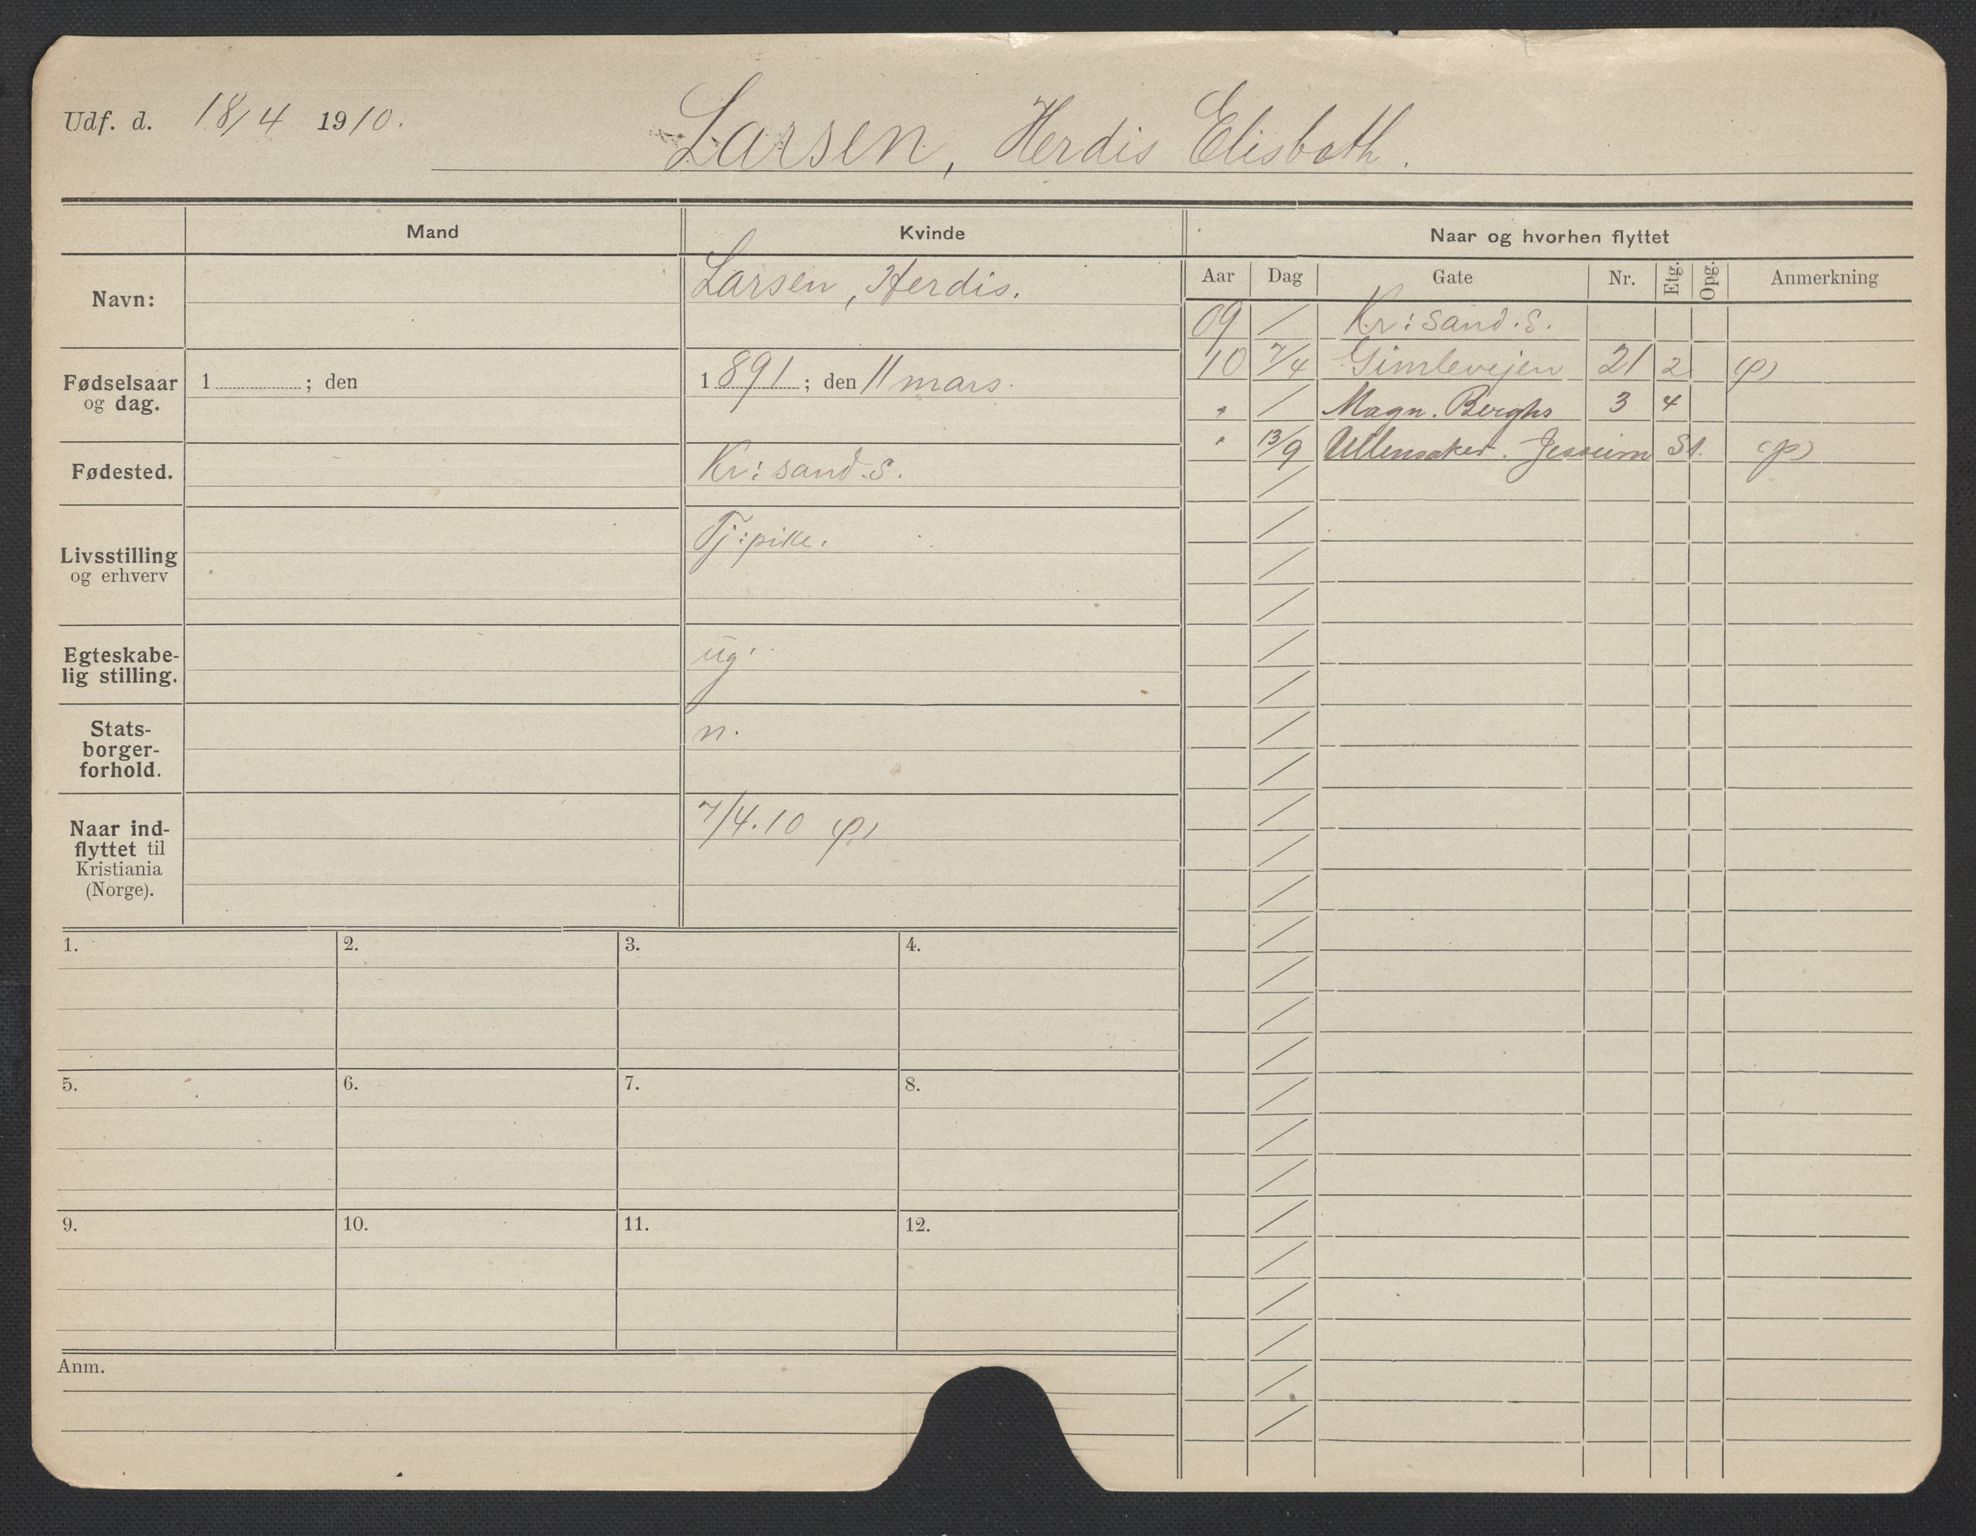 Udf. d. 18/4 1910. Larsen, Herdis Elisbeth.
Mand Kvinde Naar og hvorhen flyttet
Aar Dag Gate Nr. Etg. Opg. Anmerkning
Navn: Larsen, Herdis.
Fødselsaar og dag. 1 ; den 1891 ; den 11 mars.
Fødested. Kr: sand. S.
Livsstilling og erhverv Tj: pike.
Egteskabe-
lig stilling. ug.
Stats-
borger-
forhold. n.
Naar ind-
flyttet til
Kristiania
(Norge). 7/4.10 (p)
09 / Kr: sand. S.
10 7/4 Gimlevejen 21 2 (p)
" / Magn. Berghs 3 4
" 13/9 Ullensaker. Jesseim St. (p)
1. 2. 3. 4.
5. 6. 7. 8.
9. 10. 11. 12.
Anm.